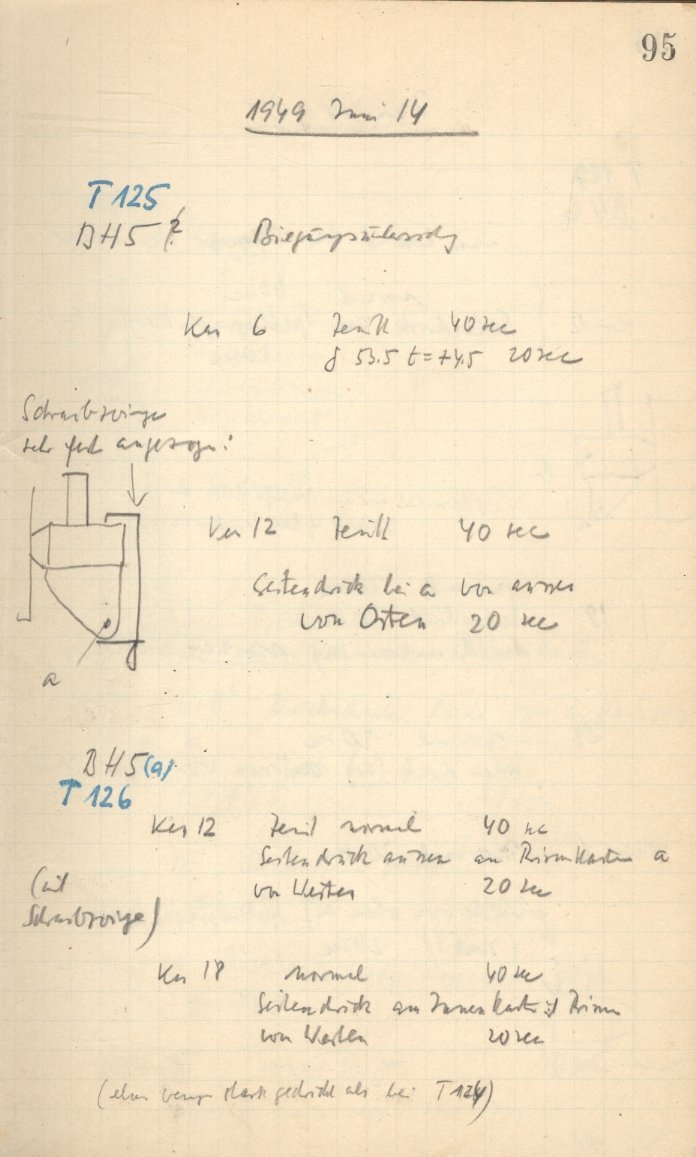 95
1949 Juni 14
T 125
BH5
Kas 6 Zenit 40 sec
δ 53.5 t=+4.5 20 sec
Schraubzwinge
sehr fest angezogen!
Kas 12 Zenit 40 sec
Seitendruck bei a von aussen
von Osten 20 sec
a
BH5(a)
T 126
Kas 12 Zenit normal 40 sec
Seitendruck aussen am Prismenkasten a
von Westen 20 sec
(mit
Schraubzwinge)
Kas 18 normal 40 sec
Seitendruck am Innenkasten Prism
von Westen 20 sec
(etwas weniger stark gedrückt als bei T124)